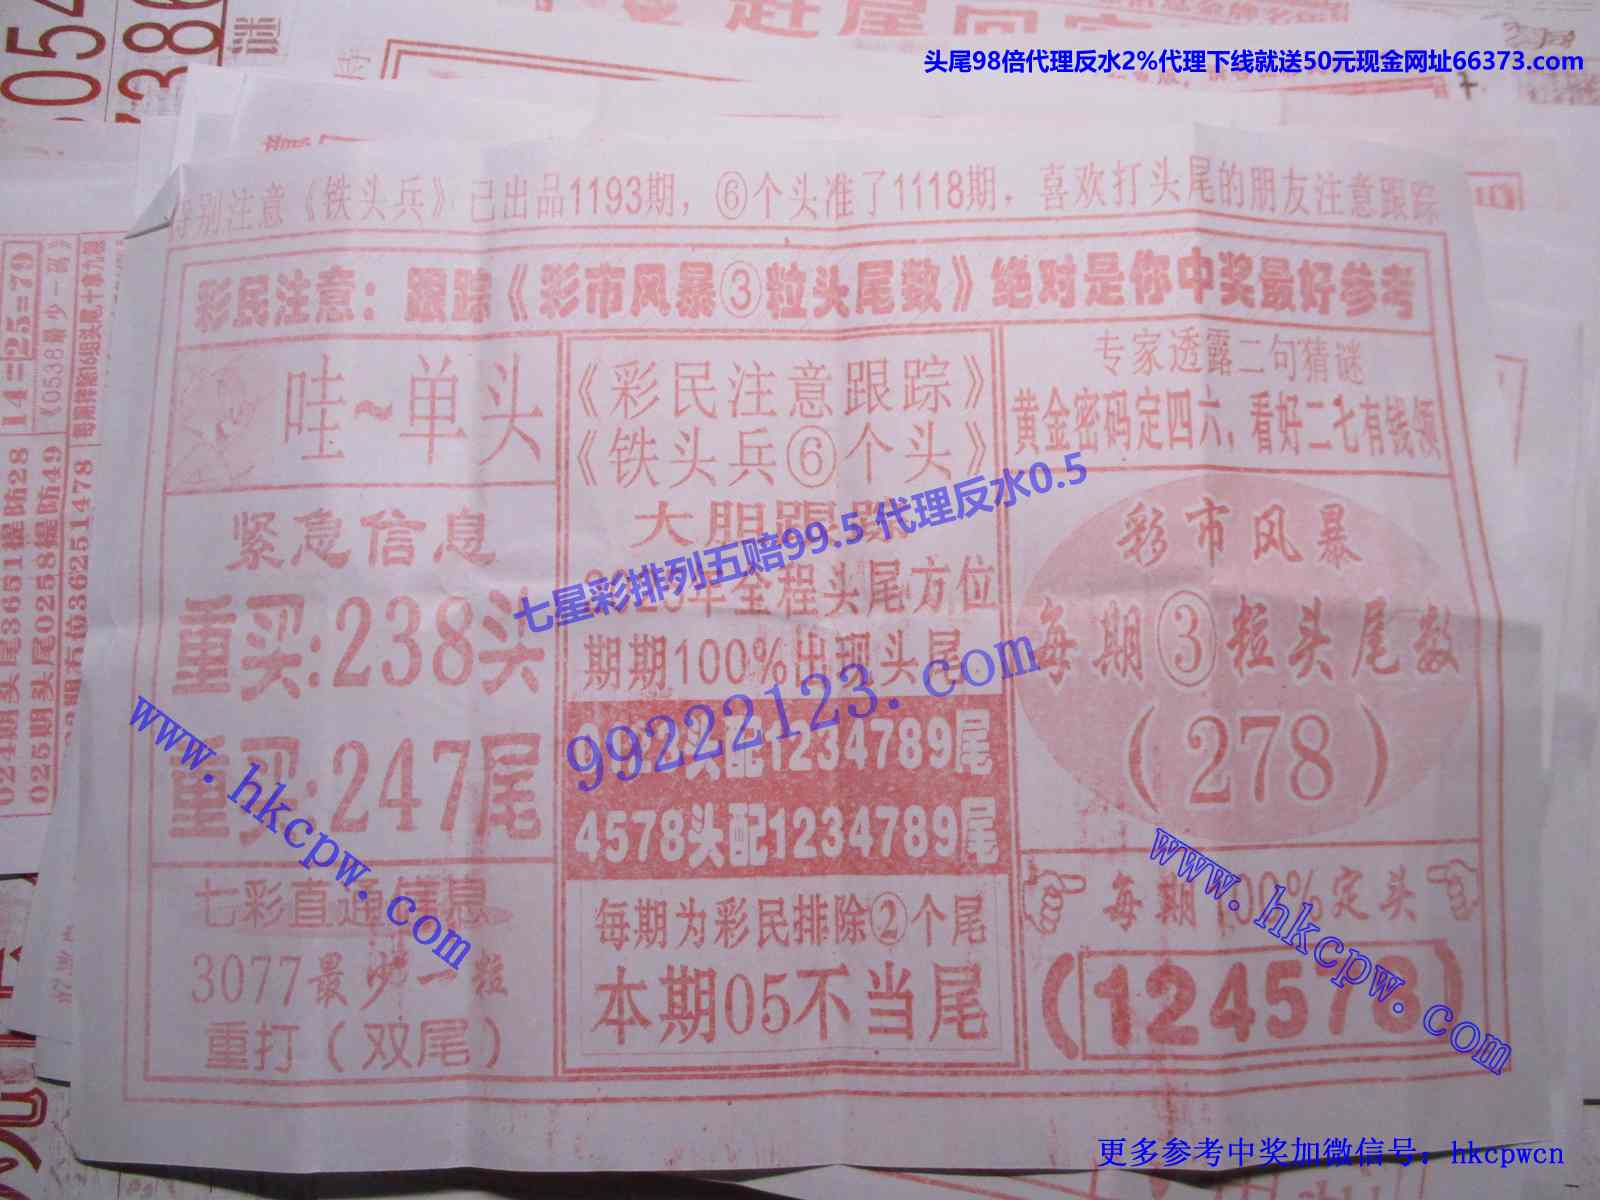 头尾98倍代理反水2%代理下线就送50元现金网址66373.com
特别注意《铁头兵》已出品1193期，⑥个头准了1118期，喜欢打头尾的朋友注意跟踪
彩民注意：跟踪《彩市风暴③粒头尾数》绝对是你中奖最好参考
哇~单头
紧急信息
重买:238头
重买:247尾
七彩直通信息
3077最少一粒
重打（双尾）
《彩民注意跟踪》
《铁头兵⑥个头》
大胆跟踪
年全程头尾方位
期期100%出现头尾
头配1234789尾
4578头配1234789尾
每期为彩民排除②个尾
本期05不当尾
专家透露二句猜谜
黄金密码定四六，看好二七有钱领
彩市风暴
每期③粒头尾数
（278）
每期100%定头
（124578）
七星彩排列五赔99.5 代理反水0.5
99222123.com
www.hkcpw.com
www.hkcpw.com
14=25=79
《0538最少一码》
024期头尾3651提防28
025期头尾0258提防49
方位36251478
更多参考中奖加微信号：hkcpwcn